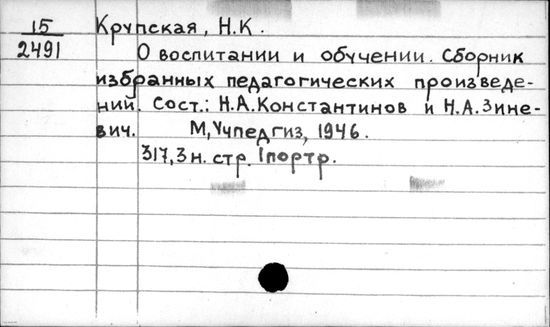 15 Крупская, Н.К.
2491 О воспитании и обучении. Сборник
избранных педагогических произведе-
ний. Сост.: Н.А.Константинов и Н.А.Зине-
вич. М,Учпедгиз, 1946.
317,3н. стр. 1портр.